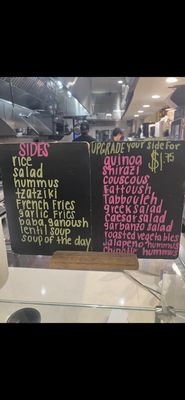 SIDES
rice
salad
hummus
tzatziki
French Fries
garlic fries
baba ganoush
lentil soup
soup of the day
UPGRADE your side for
$1.75
quinoa
shirazi
couscous
fattoush
Tabbouleh
greek salad
caesar salad
garbanzo salad
roasted vegetables
Jalapeno hummus
chipotle hummus